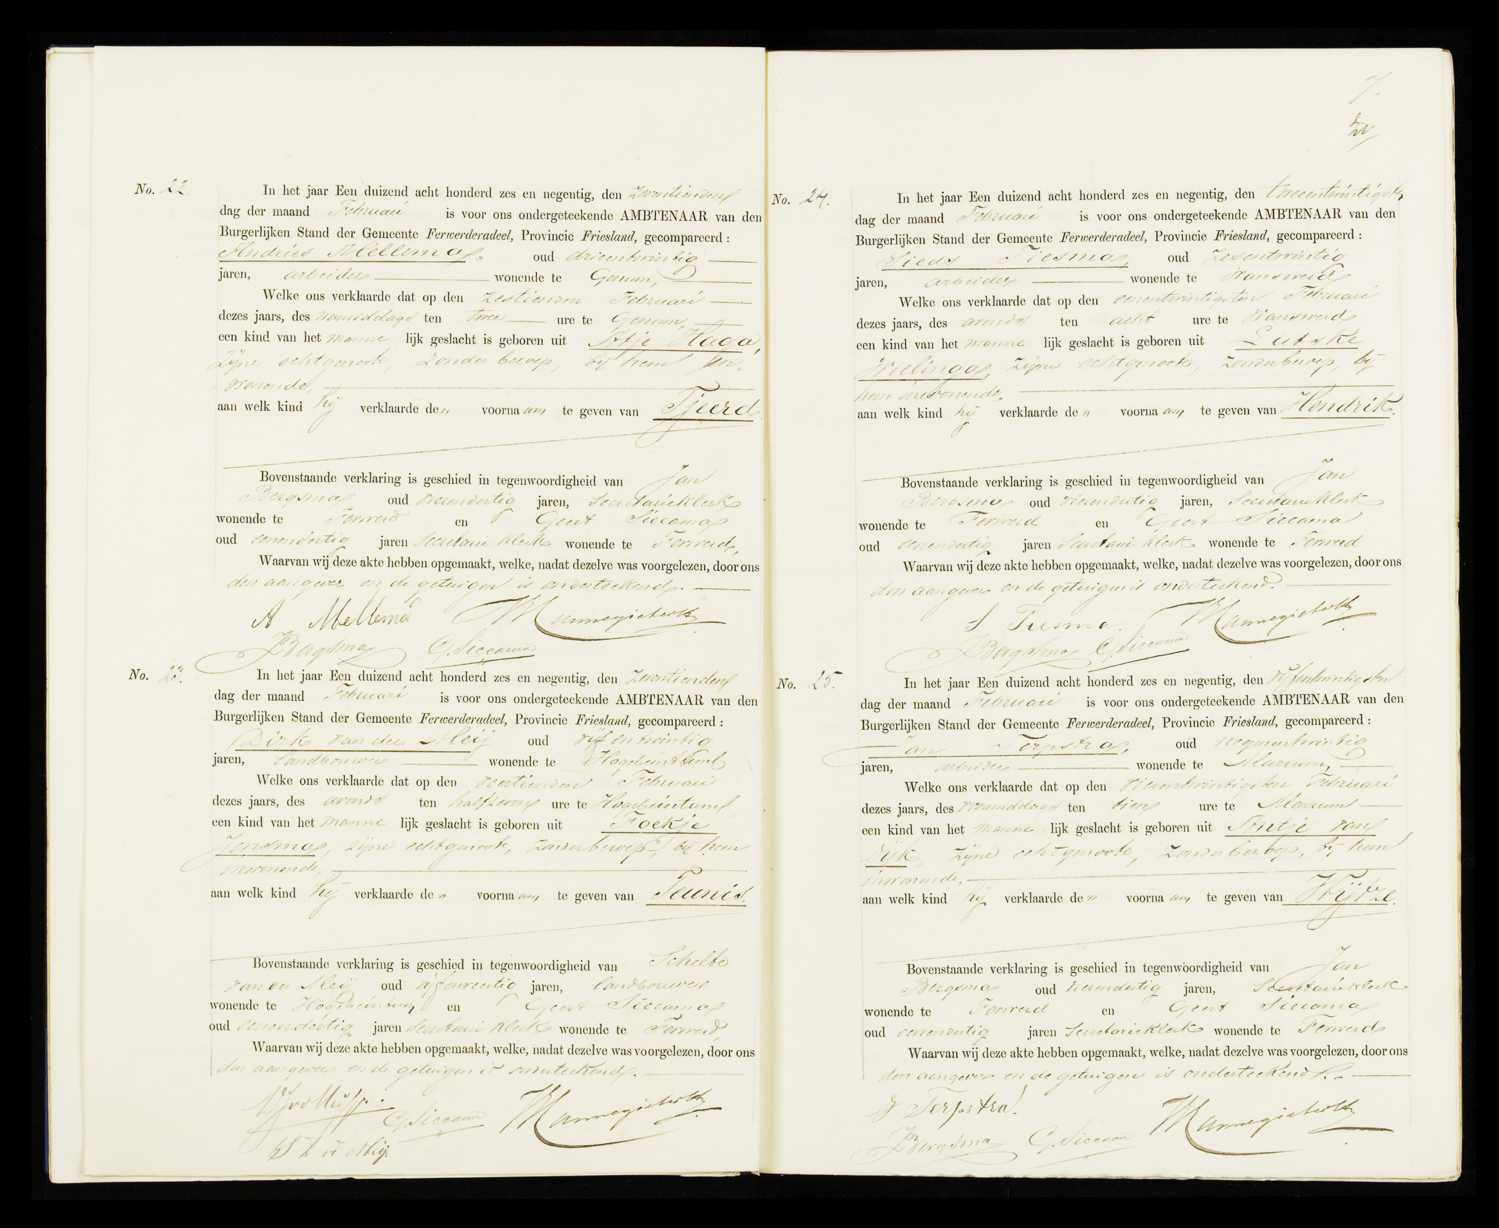 No. 22. In het jaar Een duizend acht honderd zes en negentig, den zeventienden
dag der maand Februari is voor ons ondergeteekende AMBTENAAR van den
Burgerlijken Stand der Gemeente Ferwerderadeel, Provincie Friesland, gecompareerd :
Andries Mellema, oud drieentwintig
jaren, arbeider wonende te Genum,
Welke ons verklaarde dat op den zestienden Februari
dezes jaars, des namiddags ten twee ure te Genum,
een kind van het manne lijk geslacht is geboren uit Atje Haga,
zijne echtgenoote, zonder beroep, bij hem in-
wonende,
aan welk kind hij verklaarde den voornaam te geven van Tjeerd.
Bovenstaande verklaring is geschied in tegenwoordigheid van Jan
Bergsma oud vierendertig jaren, Secretarieklerk
wonende te Ferwerd en Geert Siccama
oud eenendertig jaren Secretarie klerk wonende te Ferwerd,
Waarvan wij deze akte hebben opgemaakt, welke, nadat dezelve was voorgelezen, door ons
den aangever en de getuigen is onderteekend.
A Mellema Kannegieter
JBergsma G, Siccama
No. 23. In het jaar Een duizend acht honderd zes en negentig, den zeventienden
dag der maand Februari is voor ons ondergeteekende AMBTENAAR van den
Burgerlijken Stand der Gemeente Ferwerderadeel, Provincie Friesland, gecompareerd :
Dirk van der Meij oud vijfentwintig
jaren, landbouwer wonende te Hogebeintum,
Welke ons verklaarde dat op den zestienden Februari
dezes jaars, des avonds ten half zeven ure te Hogebeintum
een kind van het manne lijk geslacht is geboren uit Foekje
Jensma, zijne echtgenoote, zonder beroep, bij hem
inwonende,
aan welk kind hij verklaarde den voornaam te geven van Teunis.
Bovenstaande verklaring is geschied in tegenwoordigheid van Schelte
van der Meij oud jaren, landbouwer
wonende te Hogebeintum en Geert Siccama
oud eenendertig jaren Secretarie klerk wonende te Ferwerd,
Waarvan wij deze akte hebben opgemaakt, welke, nadat dezelve was voorgelezen, door ons
den aangever en de getuigen is onderteekend.
G, Siccama
No. 24. In het jaar Een duizend acht honderd zes en negentig, den tweeentwintigsten
dag der maand Februari is voor ons ondergeteekende AMBTENAAR van den
Burgerlijken Stand der Gemeente Ferwerderadeel, Provincie Friesland, gecompareerd :
Tiesma, oud zesentwintig
jaren, arbeider wonende te Wanswerd
Welke ons verklaarde dat op den eenentwintigsten Februari
dezes jaars, des avonds ten acht ure te Wanswerd
een kind van het manne lijk geslacht is geboren uit Lutske
Wielinga, zijne echtgenoote, zonder beroep, bij
hem inwonende,
aan welk kind hij verklaarde den voornaam te geven van Hendrik.
Bovenstaande verklaring is geschied in tegenwoordigheid van Jan
Bergsma oud vierendertig jaren, Secretarieklerk
wonende te Ferwerd en Geert Siccama
oud eenendertig jaren Secretarie klerk wonende te Ferwerd
Waarvan wij deze akte hebben opgemaakt, welke, nadat dezelve was voorgelezen, door ons
den aangever en de getuigen is onderteekend.
S Tiesma.
JBergsma G, Siccama
No. 25. In het jaar Een duizend acht honderd zes en negentig, den vijfentwintigsten
dag der maand Februari is voor ons ondergeteekende AMBTENAAR van den
Burgerlijken Stand der Gemeente Ferwerderadeel, Provincie Friesland, gecompareerd :
Jan Terpstra, oud negenentwintig
jaren, arbeider wonende te Marrum,
Welke ons verklaarde dat op den vierentwintigsten Februari
dezes jaars, des voormiddags ten tien ure te Marrum
een kind van het manne lijk geslacht is geboren uit Sintje van
Dijk, zijne echtgenoote, zonder beroep, bij hem
inwonende,
aan welk kind hij verklaarde den voornaam te geven van Wijtze.
Bovenstaande verklaring is geschied in tegenwoordigheid van Jan
Bergsma oud vierendertig jaren, Secretarieklerk
wonende te Ferwerd en Geert Siccama
oud eenendertig jaren Secretarieklerk wonende te Ferwerd
Waarvan wij deze akte hebben opgemaakt, welke, nadat dezelve was voorgelezen, door ons
den aangever en de getuigen is onderteekend.
J Terpstra.
JBergsma G, Siccama